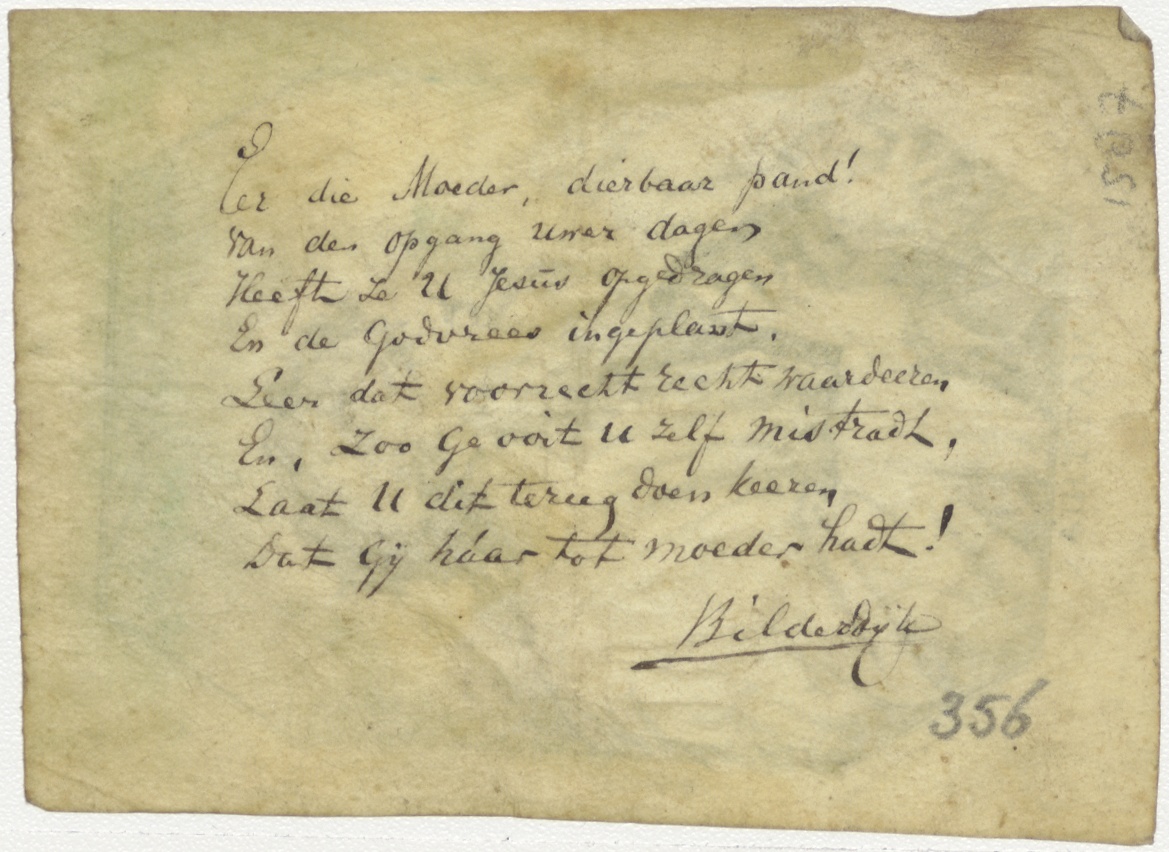 Eer die Moeder, dierbaar pand!
Van den opgang uwer dagen
Heeft ze U Jesus opgedragen
En de Godvrees ingeplant.
Leer dat voorrecht recht waardeeren
En, zoo Ge ooit U zelf mistradt,
Laat U dit terug doen keeren,
Dat Gij háar tot moeder hadt!
Bilderdijk
356